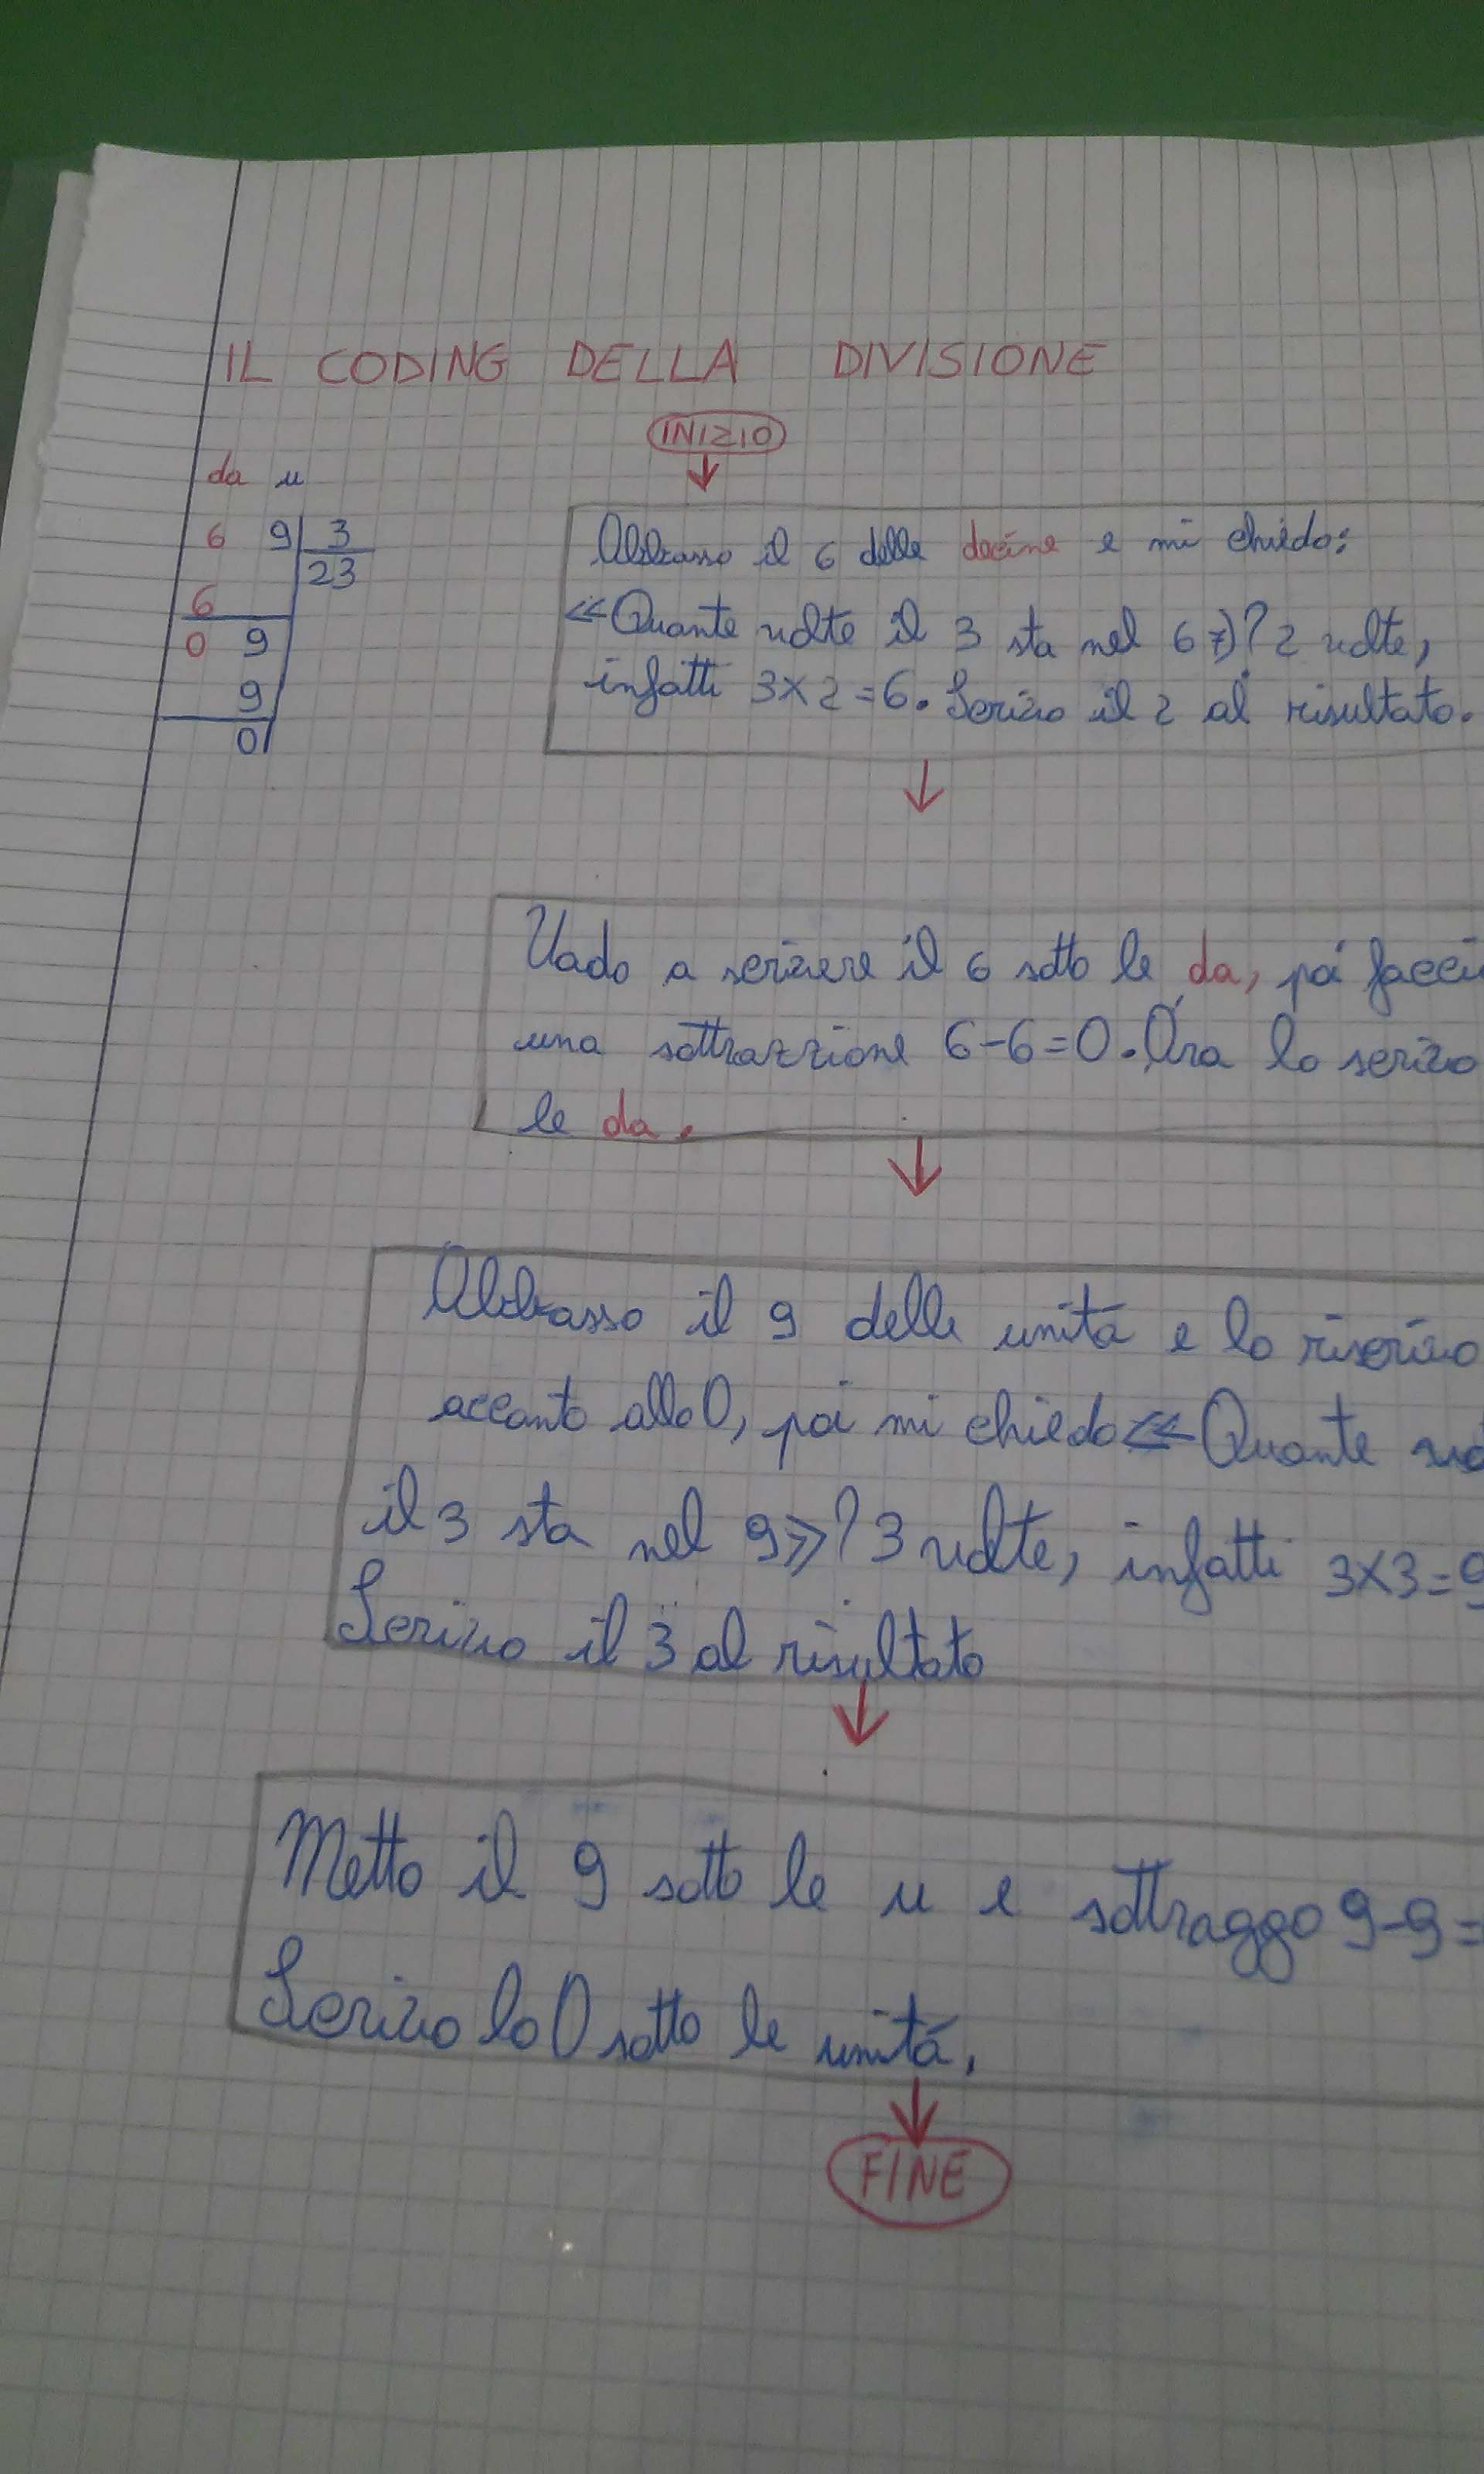 IL CODING DELLA DIVISIONE
INIZIO
da u
6 9 3
23
6
0 9
9
0
Abbasso il 6 delle decine e mi chiedo:
«Quante volte il 3 sta nel 6»? 2 volte,
infatti 3×2=6. Scrivo il 2 al risultato.
Vado a scrivere il 6 sotto le da, poi
una sottrazzione 6-6=0. Ora lo scrivo
le da.
Abbasso il 9 delle unità e lo riscrivo
accanto allo 0, poi mi chiedo «Quante
il 3 sta nel 9»? 3 volte, infatti 3×3=9
Scrivo il 3 al risultato
Metto il 9 sotto le u e sottraggo 9-9=
Scrivo lo 0 sotto le unitá.
FINE